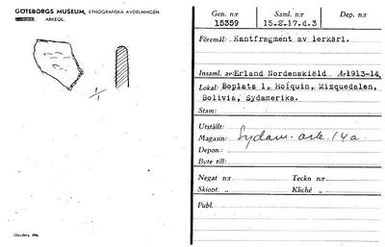 GÖTEBORGS MUSEUM, ETNOGRAFISKA AVDELNINGEN
ARKEOL.
Gen. n:r Saml. n:r Dep. n:r
15359 15.E.17.d.3
Föremål: Kantfragment av lerkärl.
Insaml. av: Erland Nordenskiöld År 1913-14.
Lokal: Boplats 1, Holquin, Mizquedalen,
Bolivia, Sydamerika.
Stam:
Utställe:
Magasin: Sydam. ark. 14a
Depon.:
Byte till:
Negat n:r Teckn n:r
Skiopt. „ Kliché „
Publ.